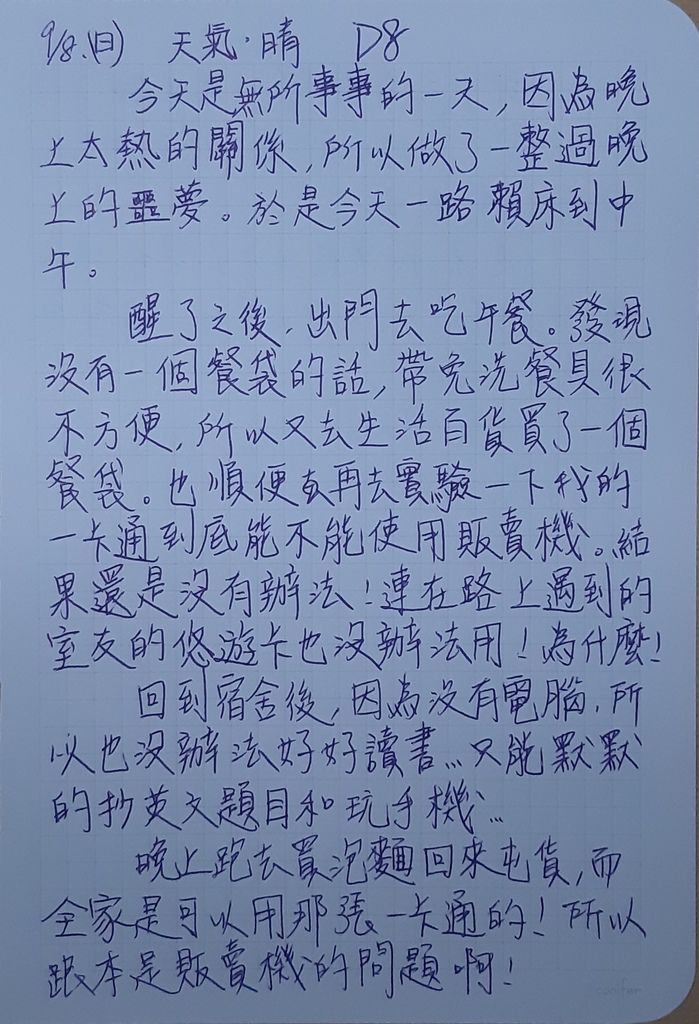 9/8.(日) 天氣.晴 D8
今天是無所事事的一天,因為晚
上太熱的關係,所以做了一整過晚
上的噩夢。於是今天一路賴床到中
午。
醒了之後,出門去吃午餐。發現
沒有一個餐袋的話,帶免洗餐具很
不方便,所以又去生活百貨買了一個
餐袋。也順便去再去實驗一下我的
一卡通到底能不能使用販賣機。結
果還是沒有辦法!連在路上遇到的
室友的悠遊卡也沒辦法用!為什麼!
回到宿舍後,因為沒有電腦,所
以也沒辦法好好讀書...只能默默
的抄英文題目和玩手機...
晚上跑去買泡麵回來屯貨,而
全家是可以用那張一卡通的!所以
跟本是販賣機的問題啊!